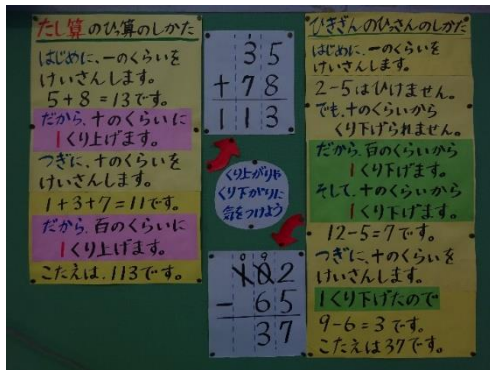 たし算のひっ算のしかた
はじめに、一のくらいを
けいさんします。
5+8=13です。
だから、十のくらいに
1くり上げます。
つぎに、十のくらいを
けいさんします。
1+3+7=11です。
だから、百のくらいに
1くり上げます。
こたえは、113です。
1
35
+78
113
くり上がりや
くり下がりに
気をつけよう
0 9
102
- 65
37
ひきざんのひっさんのしかた
はじめに、一のくらいを
けいさんします。
2-5はひけません。
でも、十のくらいから
くり下げられません。
だから、百のくらいから
1くり下げます。
そして、十のくらいから
1くり下げます。
12-5=7です。
つぎに、十のくらいを
けいさんします。
1くり下げたので
9-6=3です。
こたえは37です。